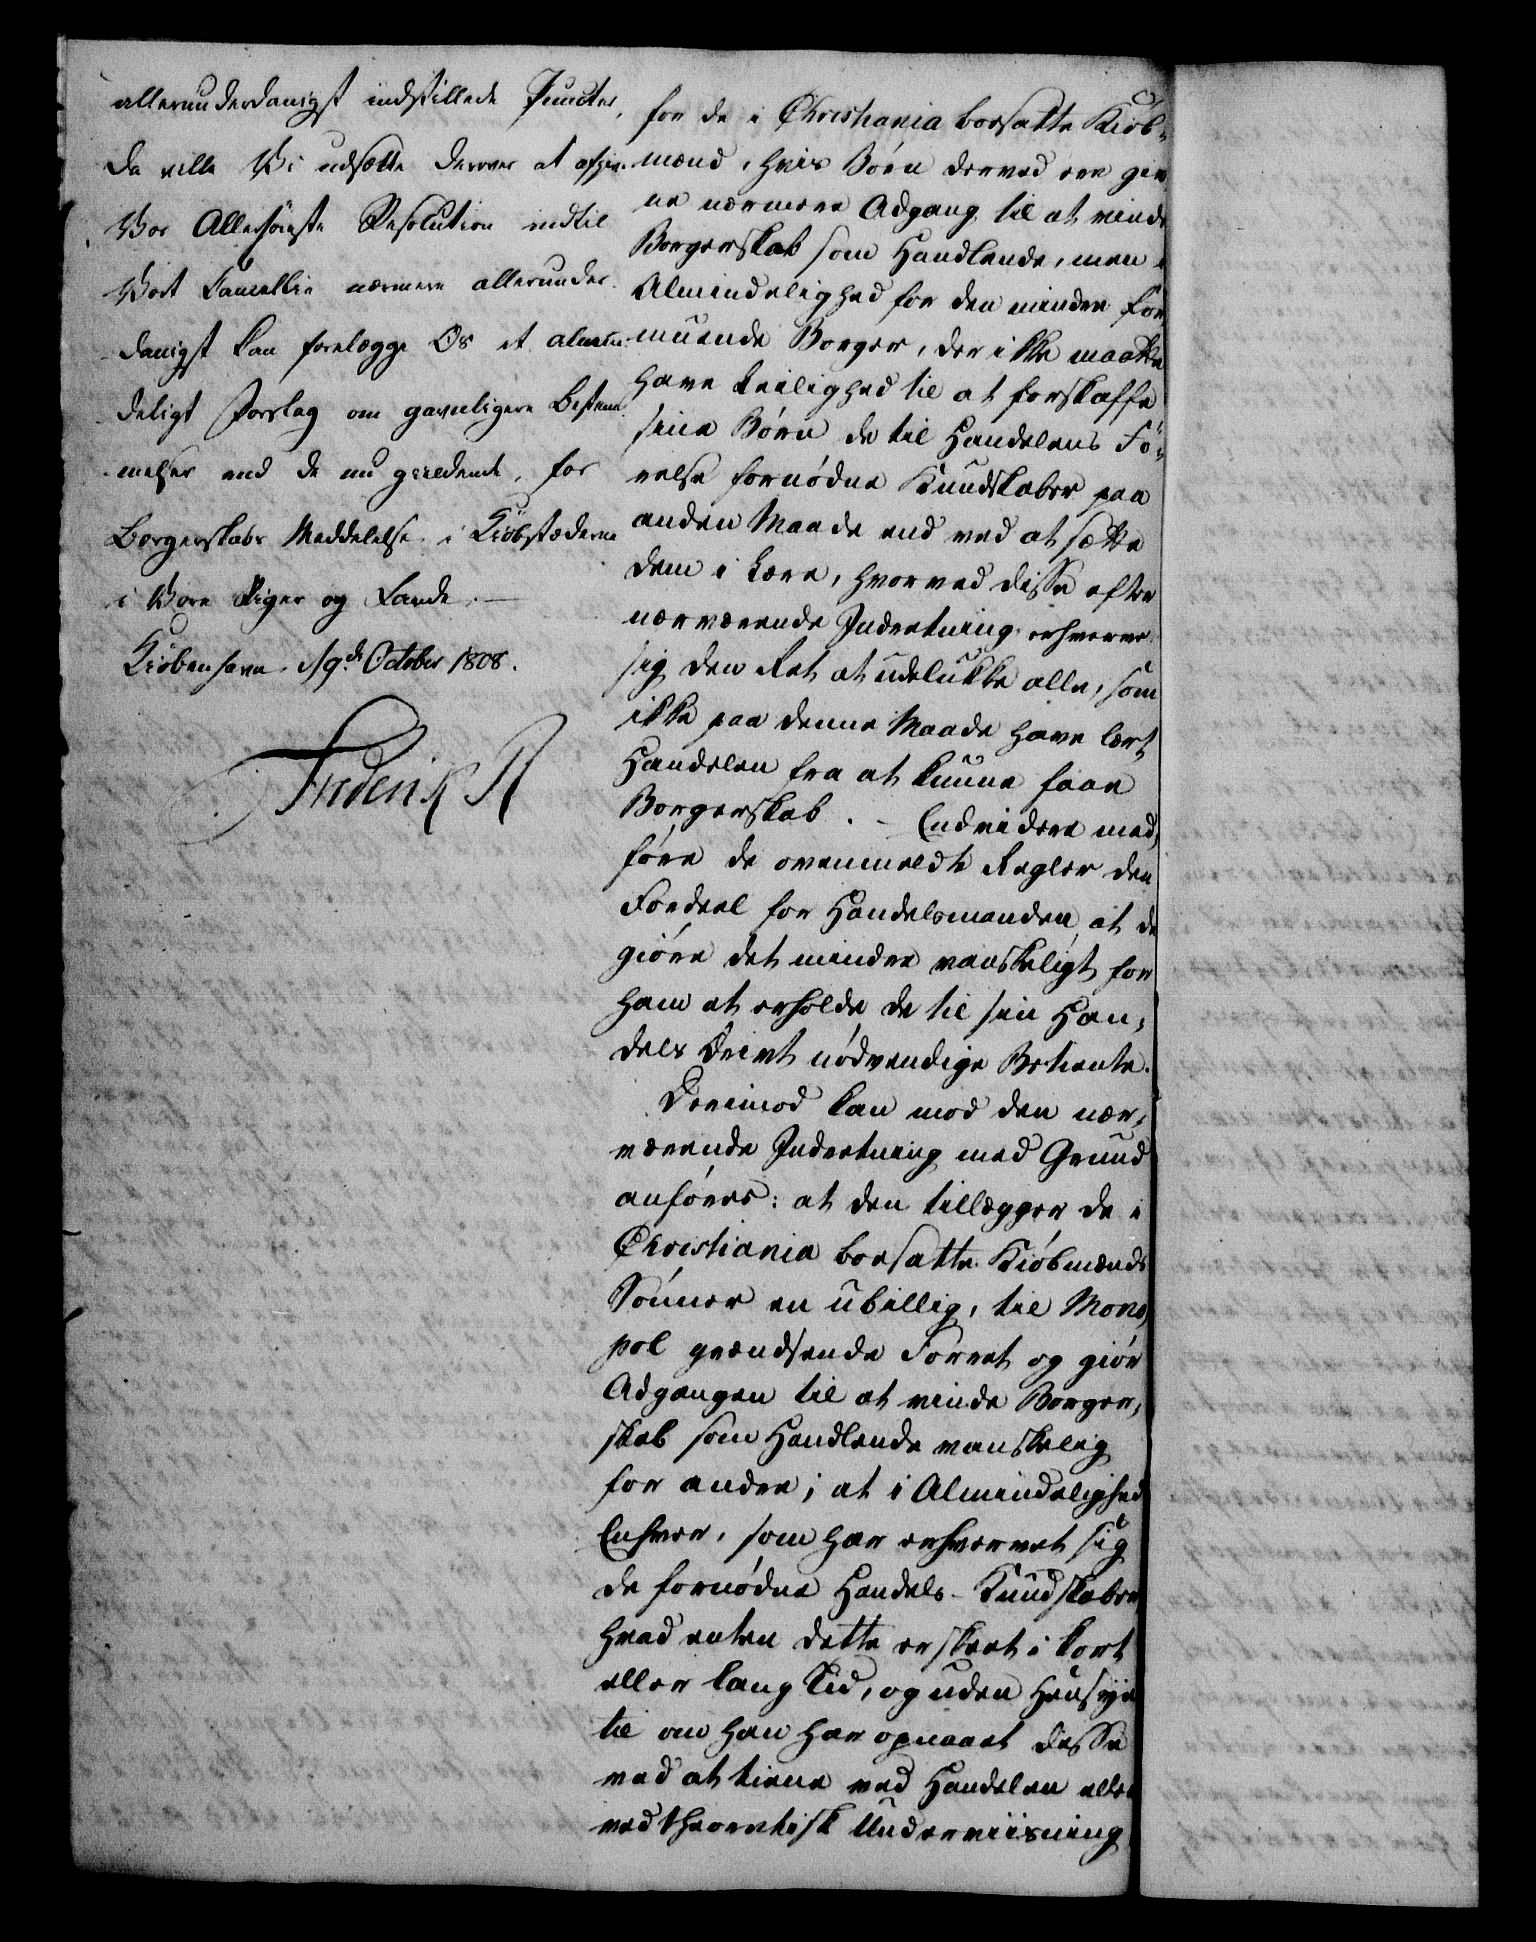 allerunderdanigst indstillede Puncter,
da ville Vi udsætte derover at afgive
Vor Allerhøieste Resolution indtil
Vort Cancellie nærmere allerunder-
danigst kan forelægge Os et almin-
deligt Forslag om gavnligere Bestem-
melser end de nu gieldende, for
Borgerskabs Meddelelse i Kiøbstæderne
i Vore Riger og Lande. —
Kiøbenhavn d. 19de October 1808.
Frederik R
for de i Christiania bosatte Kiøb-
mænd, hvis Børn derved ere giv
ne nærmere Adgang til at vinde
Borgerskab som Handlende, men i
Almindelighed for den mindre for-
muende Borger, der ikke maatte
have Leilighed til at forskaffe
sine Børn de til Handelens Fø-
relse fornødne Kundskaber paa
anden Maade end ved at sætte
dem i Lære, hvorved disse efter
nærværende Indretning erhverve
sig den Ret at udelukke alle, som
ikke paa denne Maade have lært
Handelen fra at kunne faae
Borgerskab. – Endvidere med-
føre de ovenmeldte Regler den
Fordeel for Handelsmanden, at de
giøre det mindre vanskeligt for
ham at erholde de til sin Han-
dels Drivt nødvendige Betiente.
Derimod kan mod den nær-
værende Indretning med Grund
anføres: at den tillægger de i
Christiania bosatte Kiøbmænds
Sønner en ubillig, til Mono-
pol grændsende Forret og giør
Adgangen til at vinde Borger-
skab som Handlende vanskelig
for andre; at i Almindelighed
Enhver, som har erhvervet sig
de fornødne Handels-Kundskaber
hvad enten dette er skeet i kort
eller lang Tid, og uden Hensyn
til om han har opnaaet disse
ved at tiene ved Handelen eller
ved theoretisk Underviisning